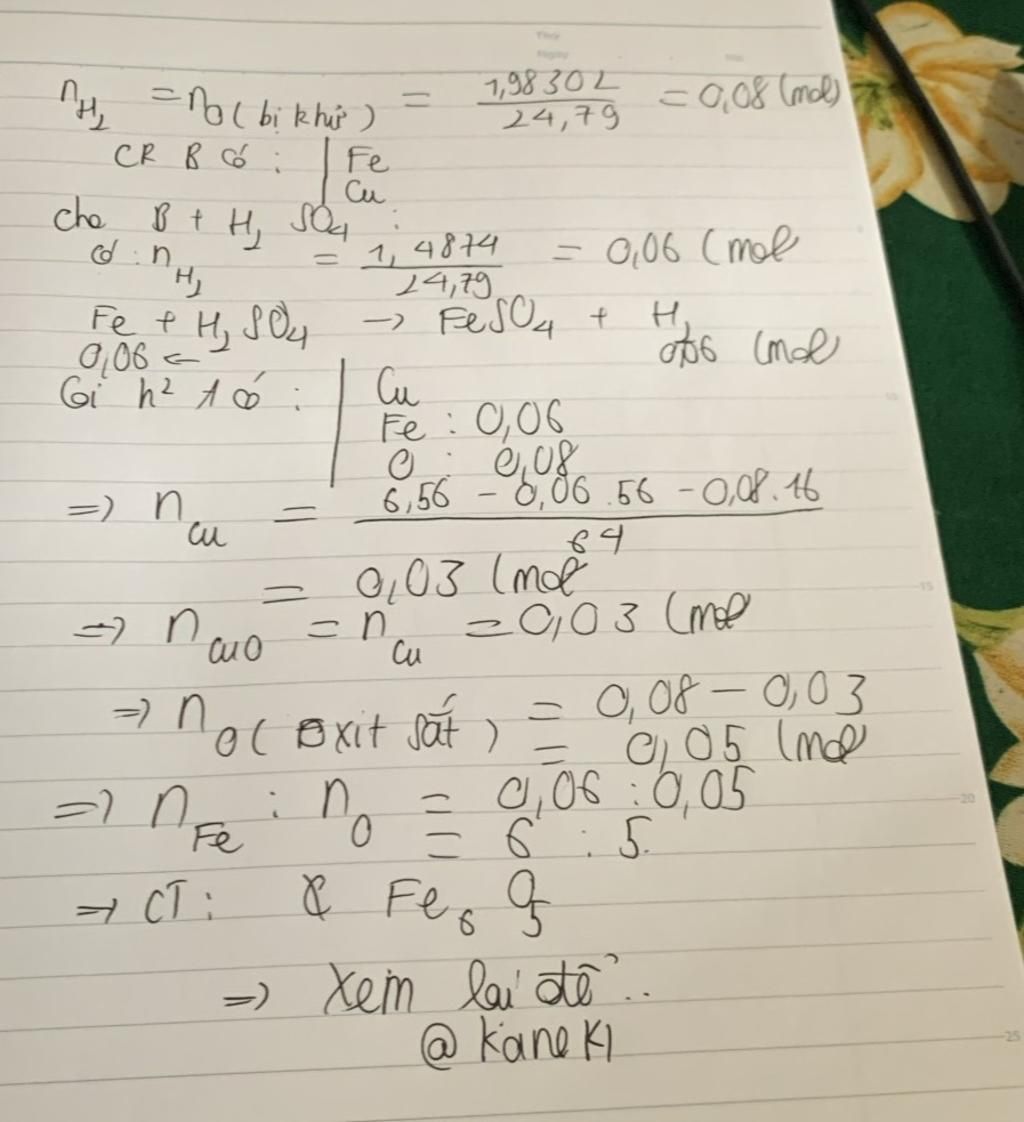 n_H₂ = n_O (bị khử) = 1,9830L / 24,79 = 0,08 (mol)
CR B có : | Fe
Cu
cho B + H₂ SO₄ :
có : n_H₂ = 1,4874 / 24,79 = 0,06 (mol
Fe + H₂ SO₄ → FeSO₄ + H₂
0,06 ← 0,06 (mol)
Gỉ h² A có : | Cu
Fe : 0,06
O : 0,08
=> n_Cu = 6,56 - 0,06 . 56 - 0,08 . 16 / 64
= 0,03 (mol
=> n_CuO = n_Cu = 0,03 (mol
=> n_O ( oxit sắt ) = 0,08 - 0,03
= 0,05 (mol
=> n_Fe : n_O = 0,06 : 0,05
= 6 : 5.
=> CT : Fe₆ O₅
=> Xem lại đề ..
@ kane KI